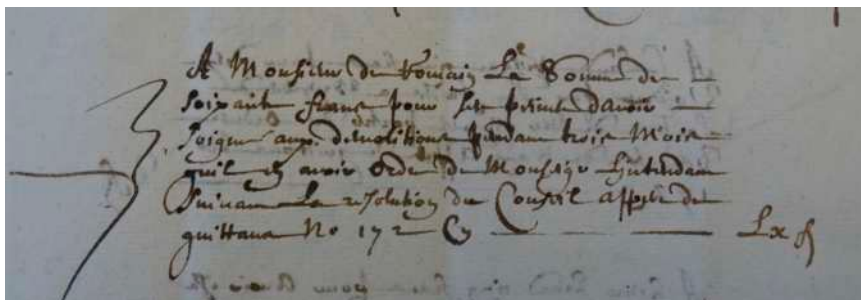 A Monsieur de Romain La Somme de
soixante francs pour ses peines davoir
soigné aux demolitions pendant trois Mois
quil en avoir ordre de Monseigr Lintendant
suivant La resolution du Conseil appert de
quittance No 172 Cy Lx f